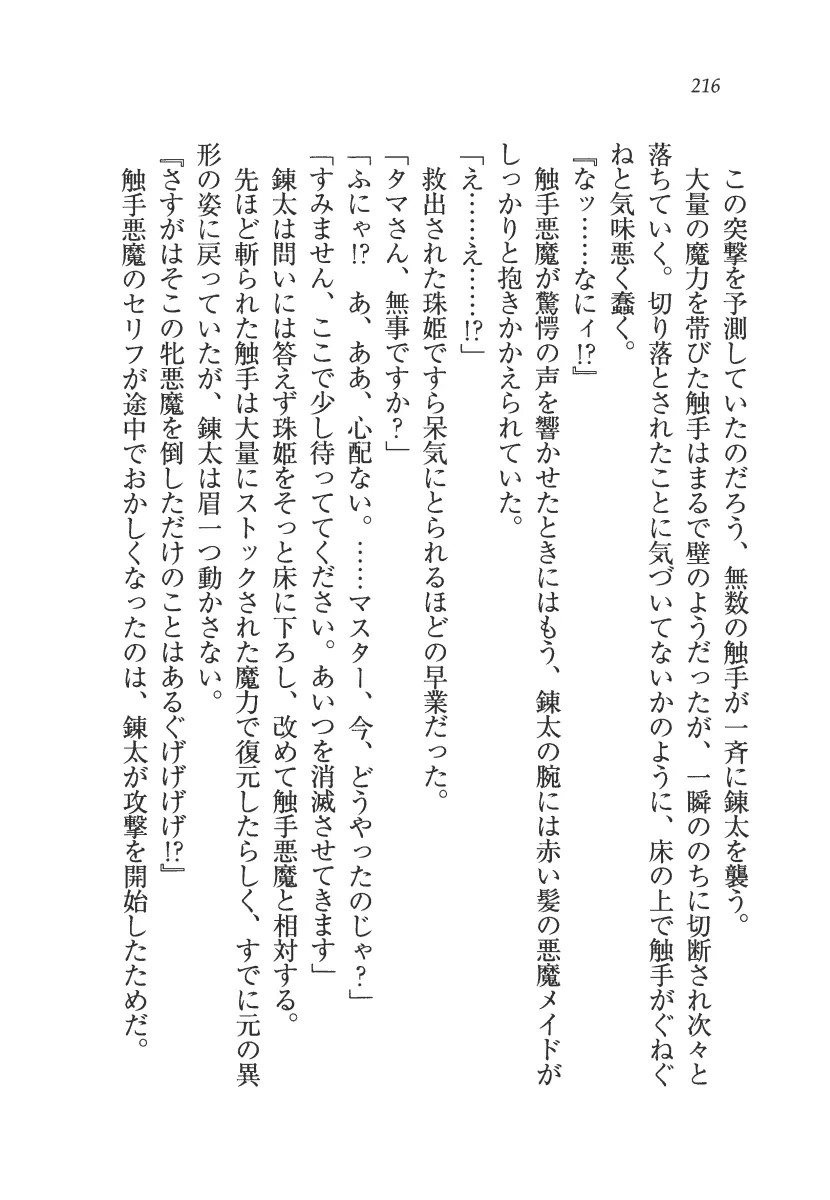 216
この突撃を予測していたのだろう、無数の触手が一斉に錬太を襲う。
大量の魔力を帯びた触手はまるで壁のようだったが、一瞬ののちに切断され次々と
落ちていく。切り落とされたことに気づいてないかのように、床の上で触手がぐねぐ
ねと気味悪く蠢く。
『なッ……なにィ!?』
触手悪魔が驚愕の声を響かせたときにはもう、錬太の腕には赤い髪の悪魔メイドが
しっかりと抱きかかえられていた。
「え……え……!?」
救出された珠姫ですら呆気にとられるほどの早業だった。
「タマさん、無事ですか？」
「ふにゃ!?　あ、ああ、心配ない。……マスター、今、どうやったのじゃ？」
「すみません、ここで少し待っててください。あいつを消滅させてきます」
錬太は問いには答えず珠姫をそっと床に下ろし、改めて触手悪魔と相対する。
先ほど斬られた触手は大量にストックされた魔力で復元したらしく、すでに元の異
形の姿に戻っていたが、錬太は眉一つ動かさない。
『さすがはそこの牝悪魔を倒しただけのことはあるぐげげげげ!?』
触手悪魔のセリフが途中でおかしくなったのは、錬太が攻撃を開始したためだ。